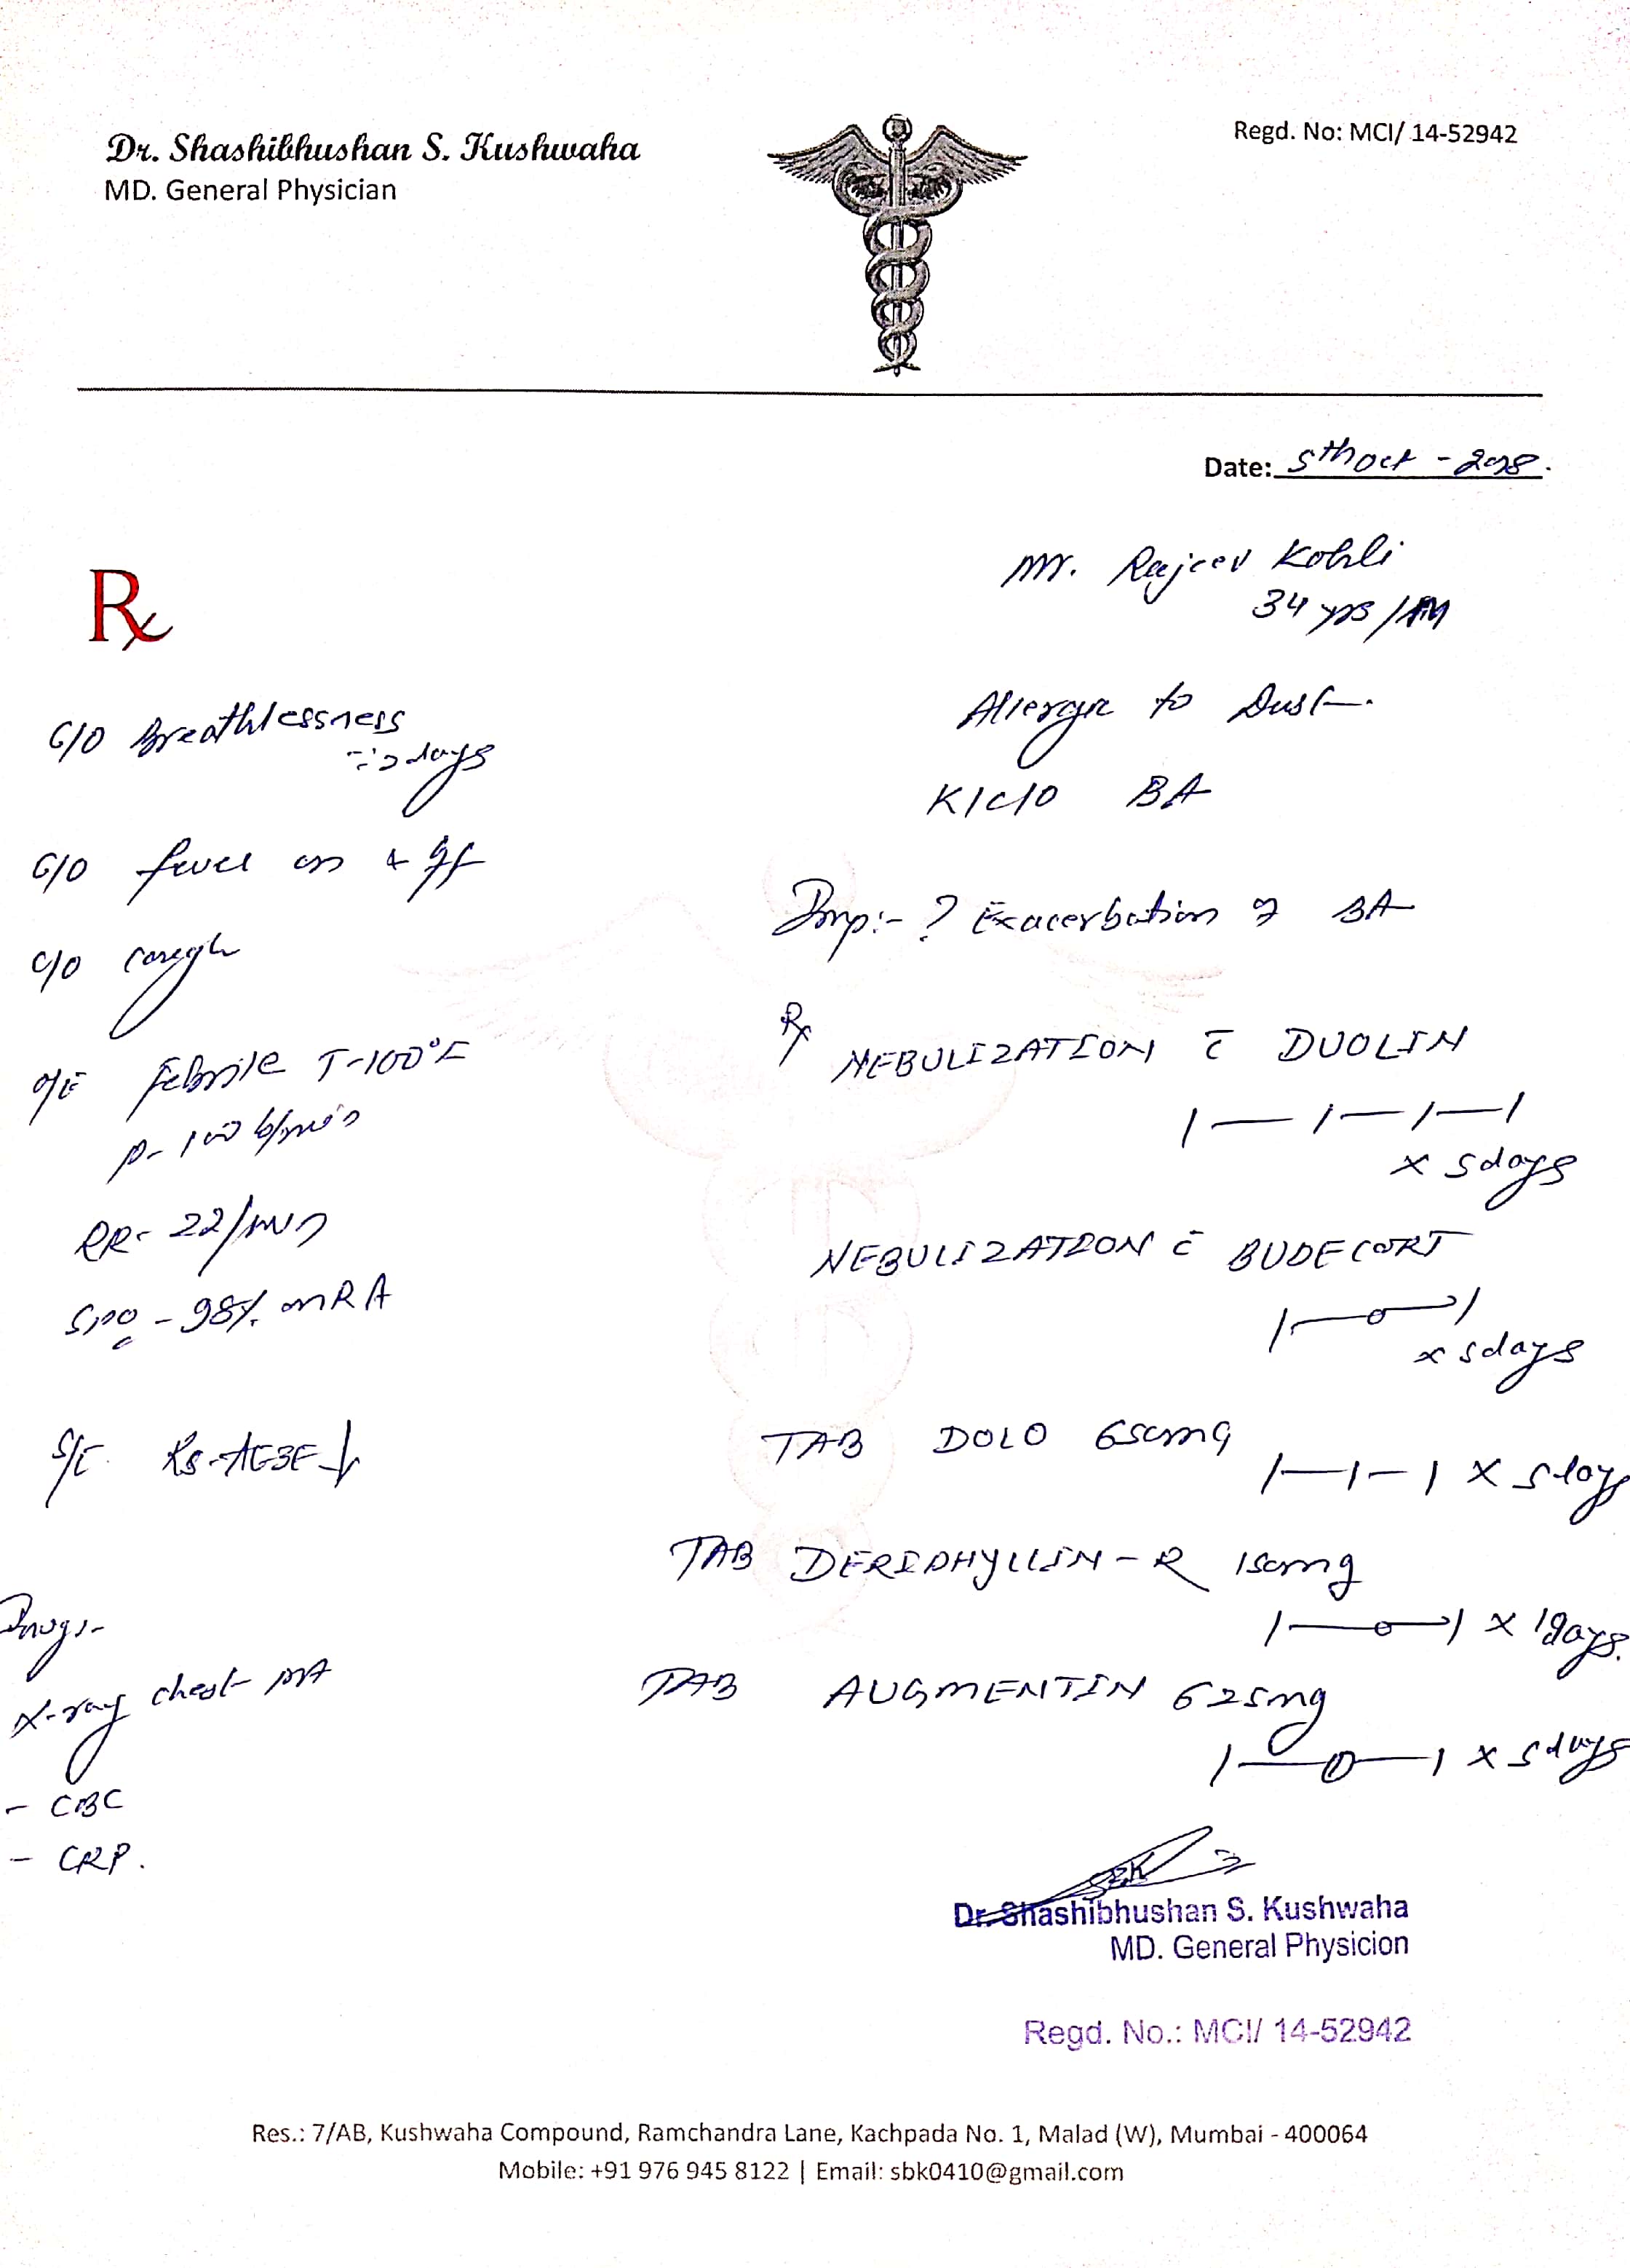 Dr. Shashibhushan S. Kushwaha
MD. General Physician
Regd. No: MCI/ 14-52942
Date: 5th Oct - 2018.
Mr. Rajeev Kohli
34 yrs /M
Rx
Allergic to Dust.
K/C/O BA
Imp:- ? Exacerbation of BA
C/O Breathlessness
days
C/O fever on & off
C/O cough
O/E Febrile T-100°F
P- 100 b/min
RR- 22/min
SPO2 - 98% on RA
S/E RS-AEBE ↓
X-ray chest PA
- CBC
- CRP.
Rx
NEBULIZATION c̄ DUOLIN
1 — 1 — 1 — 1
x 5 days
NEBULIZATION c̄ BUDECORT
1 — 0 — 1
x 5 days
TAB DOLO 650mg
1 — 1 — 1 x 5 days
TAB DERIPHYLLIN - R 150mg
1 — 0 — 1 x days.
TAB AUGMENTIN 625mg
1 — 0 — 1 x 5 days
SBK
Dr. Shashibhushan S. Kushwaha
MD. General Physicion
Regd. No.: MCI/ 14-52942
Res.: 7/AB, Kushwaha Compound, Ramchandra Lane, Kachpada No. 1, Malad (W), Mumbai - 400064
Mobile: +91 976 945 8122 | Email: sbk0410@gmail.com